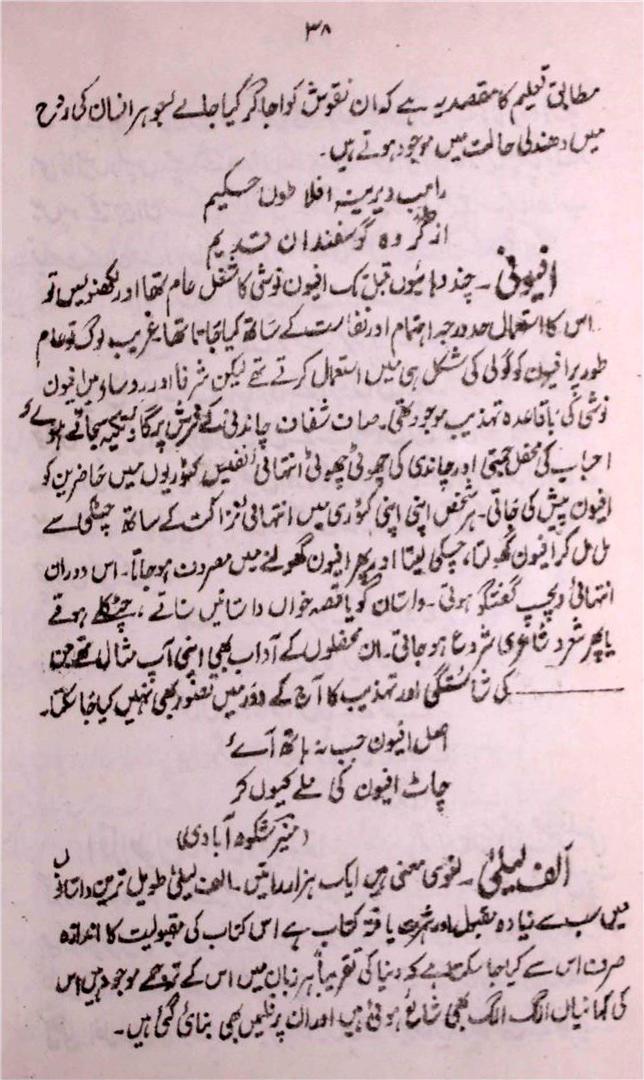 ۳۸
مطابق تعلیم کا مقصد یہ ہے کہ ان نقوش کو اجاگر کیا جائے جو ہر انسان کی روح
میں دھندلی حالت میں موجود ہوتے ہیں۔
راہب دیرینہ افلاطون حکیم
از گروہ گوسفندان قدیم
افیونی۔ چند دہائیوں قبل تک افیون نوشی کا شغل عام تھا اور لکھنؤ میں تو
اس کا استعمال حد درجہ اہتمام اور نفاست کے ساتھ کیا جاتا تھا۔ غریب لوگ تو عام
طور پر افیون کو گولی کی شکل ہی میں استعمال کرتے تھے لیکن شرفا اور رؤساء میں افیون
نوشی کی باقاعدہ تہذیب موجود تھی۔ صاف شفاف چاندنی کے فرش پر گاؤ تکیہ سجائے ہوئے
احباب کی محفل جمتی اور چاندی کی چھوٹی چھوٹی انتہائی نفیس کٹوریوں میں حاضرین کو
افیون پیش کی جاتی۔ ہر شخص اپنی اپنی کٹوری میں انتہائی نزاکت کے ساتھ چٹکی سے
مل مل کر افیون گھولتا، چسکی لیتا اور پھر افیون گھولنے میں مصروف ہو جاتا۔ اس دوران
انتہائی دلچسپ گفتگو ہوتی۔ داستان گو یا قصہ خواں داستانیں سناتے، چٹکلے ہوتے
یا پھر شعر و شاعری شروع ہو جاتی۔ ان محفلوں کے آداب بھی اپنی آپ مثال تھے جن
کی شائستگی اور تہذیب کا آج کے دور میں تصور بھی نہیں کیا جا سکتا۔
اصل افیون جب نہ ہاتھ آئے
چاٹ افیون کی ملے کیوں کر
(منیر شکوہ آبادی)
الف لیلیٰ۔ لغوی معنی ہیں ایک ہزار راتیں۔ الف لیلیٰ طویل ترین داستانوں
میں سب سے زیادہ مقبول اور شہرت یافتہ کتاب ہے اس کتاب کی مقبولیت کا اندازہ
صرف اس سے کیا جا سکتا ہے کہ دنیا کی تقریباً ہر زبان میں اس کے ترجمے موجود ہیں اس
کی کہانیاں الگ الگ بھی شائع ہوئی ہیں اور ان پر فلمیں بھی بنائی گئی ہیں۔